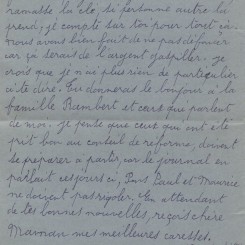 ramasse la clé, si personne autre la
prend, je compte sur toi pour tout ça
nous avons bien fait de ne pas déposer
car ça serais de l'argent gaspiller. je
crois que je n'ai plus rien de particulier
à te dire. Tu donneras le bonjour à la
famille Rambert et ceux qui parlent
de moi. je pense que ceux qui ont été
prit bon au conseil de réforme, doivent
se preparer a partir, car le journal en
parlait ces jours ci, Pons Paul et Maurice
ne doivent pas rigoler. En attendant
de tes bonnes nouvelles, reçois chère
Maman mes meilleures caresses.